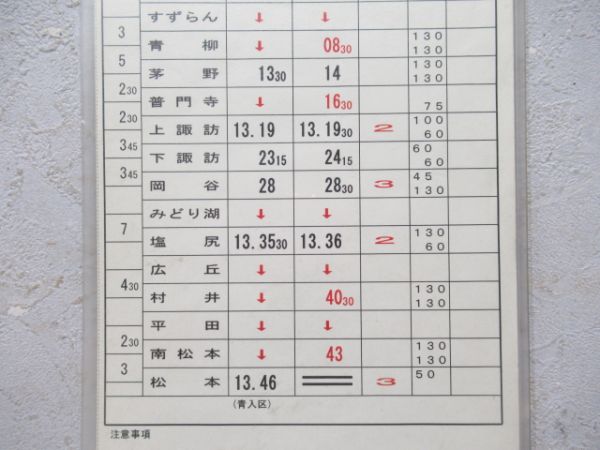 すずらん ↓ ↓
3
青柳 ↓ 0830 130 130
5
茅野 1330 14 130 130
230
普門寺 ↓ 1630 75
230
上諏訪 13.19 13.1930 2 100 60
345
下諏訪 2315 2415 60 60
345
岡谷 28 2830 3 45 130
みどり湖 ↓ ↓
7
塩尻 13.3530 13.36 2 130 60
広丘 ↓ ↓
430
村井 ↓ 4030 130 130
平田 ↓ ↓
230
南松本 ↓ 43 130 130
3
松本 13.46 3 50
(青入区)
注意事項